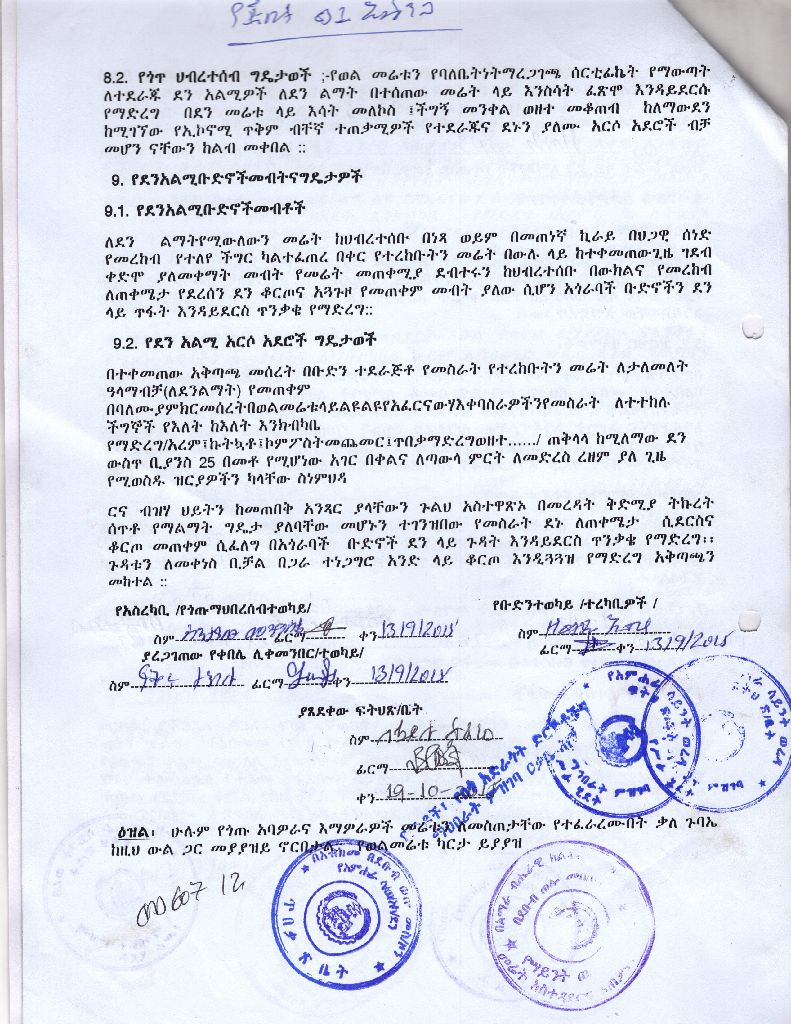 8.2. የጎዋ ህብረተሰብ ግዴታወች ;-የወል መሬቱን የባለቤትነትማረጋገጫ ሰርቲፊኬት የማውጣት
ለተደራጁ ደን አልሚዎች ለደን ልማት በተሰጠው መሬት ላይ እንስሳት ፈጽሞ እንዳይደርሱ
የማድረግ በደን መሬቱ ላይ እሳት መለኮስ ፤ችግኝ መንቀል ወዘተ መቆጠብ ከለማውደን
ከሚገኘው የኢኮኖሚ ጥቅም ብቸኛ ተጠቃሚዎች የተደራጁና ደኑን ያለሙ አርሶ አደሮች ብቻ
መሆን ናቸውን ከልብ መቀበል ::
9. የደንአልሚቡድኖችመብትናግዴታዎች
9.1. የደንአልሚቡድኖችመብቶች
ለደን ልማትየሚውለውን መሬት ከህብረተሰቡ በነጻ ወይም በመጠነኛ ኪራይ በህጋዊ ሰነድ
የመረከብ የተለየ ችግር ካልተፈጠረ በቀር የተረከቡትን መሬት በውሉ ላይ ከተቀመጠውጊዜ ገደብ
ቀድሞ ያለመቀማት መብት የመሬት መጠቀሚያ ደብተሩን ከህብረተሰቡ በውክልና የመረከብ
ለጠቀሜታ የደረሰን ደን ቆርጦና አጓጉዞ የመጠቀም መብት ያለው ሲሆን አጎራባች ቡድኖችን ደን
ላይ ጥፋት እንዳይደርስ ጥንቃቄ የማድረግ::
9.2. የደን አልሚ አርሶ አደሮች ግዴታወች
በተቀመጠው አቅጣጫ መሰረት በቡድን ተደራጅቶ የመስራት የተረከቡትን መሬት ለታለመለት
ዓላማብቻ(ለደንልማት) የመጠቀም
በባለሙያምክርመሰረትበወልመሬቱላይልዩልዩየአፈርናውሃእቀባስራዎችንየመስራት ለተተከሉ
ችግኞች የእለት ከእለት እንክብካቤ
የማድረግ/አረም፤ኩትኳቶ፤ኮምፖስትመጨመር፤ጥበቃማድረግወዘተ....../ ጠቅላላ ከሚለማው ደን
ውስጥ ቢያንስ 25 በመቶ የሚሆነው አገር በቀልና ለጣውላ ምርት ለመድረስ ረዘም ያለ ጊዜ
የሚወስዱ ዝርያዎችን ካላቸው ስነምህዳ
ርና ብዝሃ ህይትን ከመጠበቅ አንጻር ያላቸውን ጉልህ አስተዋጽኦ በመረዳት ቅድሚያ ትኩረት
ሰጥቶ የማልማት ግዴታ ያለባቸው መሆኑን ተገንዝበው የመስራት ደኑ ለጠቀሜታ ሲደርስና
ቆርጦ መጠቀም ሲፈለግ በአጎራባች ቡድኖች ደን ላይ ጉዳት እንዳይደርስ ጥንቃቄ የማድረግ፡፡
ጉዳቱን ለመቀነስ ቢቻል በጋራ ተነጋግሮ አንድ ላይ ቆርጦ እንዲጓጓዝ የማድረግ አቅጣጫን
መከተል ::
የአስረካቢ /የጎጡማህበረሰብተወካይ/ የቡድንተወካይ /ተረካቢዎች /
ስም ፊርማ ቀን 13/9/2015 ስም
ፊርማ ቀን 13/9/2015
ያረጋገጠው የቀበሌ ሊቀመንበር/ተወካይ/
ስም ፊርማ ቀን 13/9/2015
ያጸደቀው ፍትህጽ/ቤት
ስም
ፊርማ
ቀን 19-10-2015
ዕዝል፡ ሁሉም የጎጡ አባዎራና እማዎራዎች መሬቱን ለመስጠታቸው የተፈራረሙበት ቃለ ጉባኤ
ከዚህ ውል ጋር መያያዝይ ኖርበታል. የወልመሬቱ ካርታ ይያያዝ